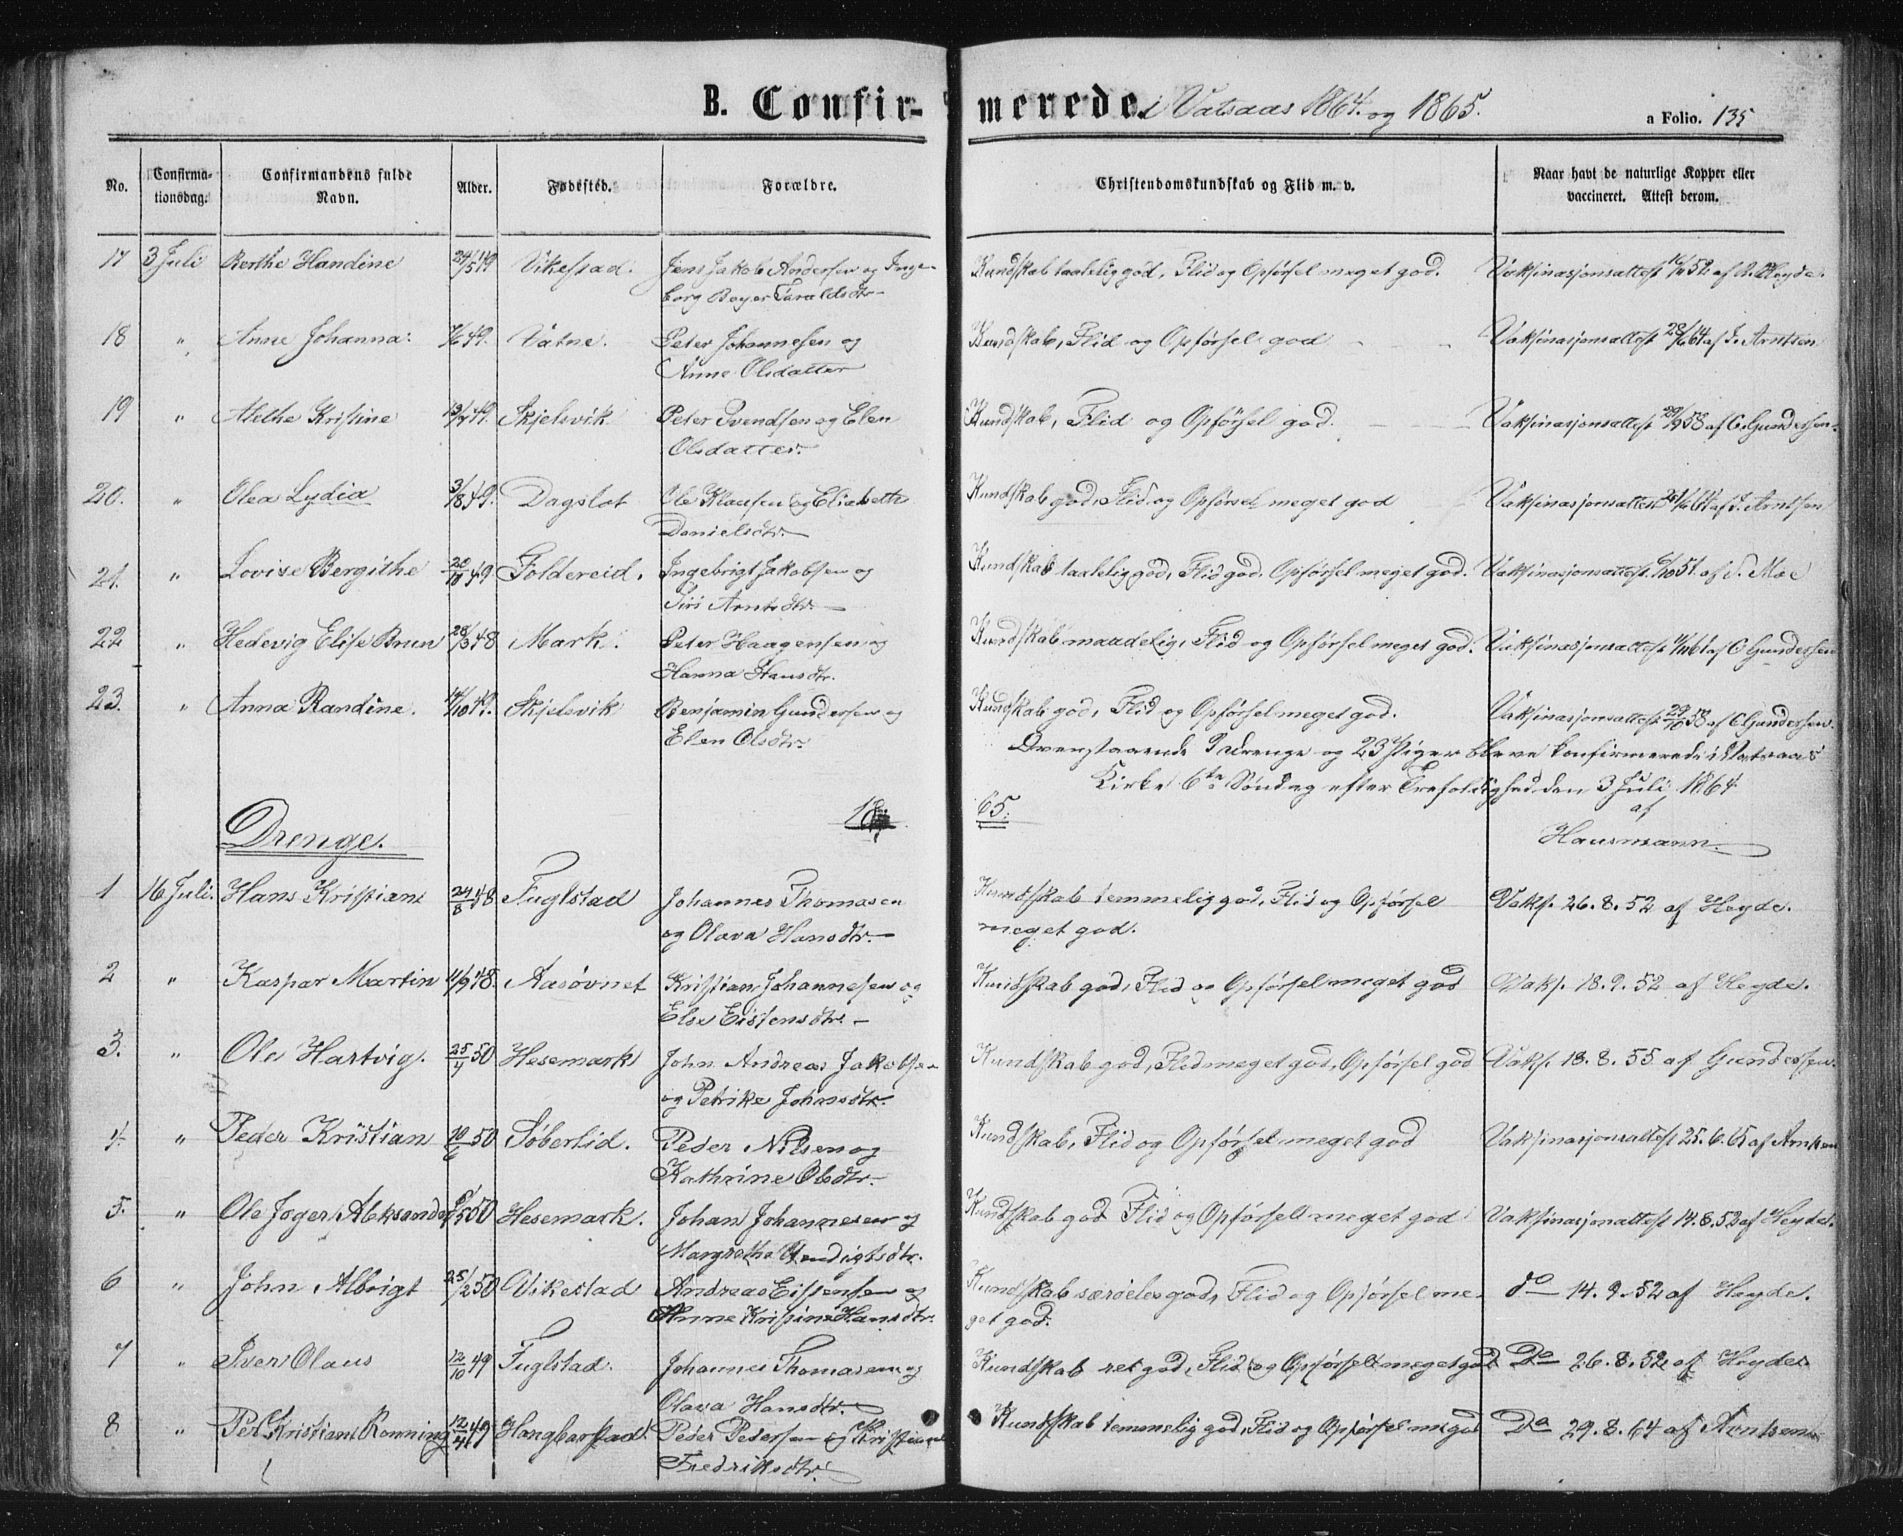 B. Confirmerede i Vatsaas 1864. og 1865.
a Folio. 135
No. Confirmationsdag. Confirmandens fulde Navn. Alder. Fødested. Forældre. Christendomskundskab og Flid m. v. Naar havt de naturlige Kopper eller vaccineret. Attest derom.
17 3 Juli Berthe Handine 24/5 49 Vikestad. Jens Jakob Andersen og Inge- Kundskab taalelig god, Flid og Opførsel meget god. Vaksinasjonsattest 52 af Heyde.
borg Beyer Taraldsdtr
18 " Anne Johanna. 7/6 49. Vatne. Peter Johannesen og Kundskab, Flid og Opførsel god Vaksinasjonsattest 28/6 64 af J. Arntsen
Anne Olsdatter
19 " Methe Kristine 13/7 49. Skjelsvik Peter Svendsen og Elen Kundskab, Flid og Opførsel god. Vaksinasjonsattest 29/9 58 af C. Gundersen
Olsdatter.
20. " Olea Lydia 3/8 49. Dagslot Ole Klausen og Elisabeth Kundskab god, Flid og Opførsel meget god Vaksinasjonsattest 64 af J. Arntsen
Danielsdtr.
21. " Lovise Bergithe 20/10 49 Foldereid. Ingebrigt Jakobsen og Kundskab taalelig god, Flid god. Opførsel meget god. Vaksinasjonsattest 6/10 51. af S. Moe
Siri Arntsdtr.
22 " Hedevig Elise Brun 28/3 48 Mark. Peter Haagensen og Kundskab maadelig, Flid og Opførsel meget god. Vaksinasjonsattest 61 af C Gundersen
Hanna Hansdtr.
23. " Anna Randine. 14/10 49. Skjelsvik Benjamin Gundersen og Kundskab god, Flid og Opførsel meget god. Vaksinasjonsattest 29/10 58 af C Gundersen.
Elen Olsdtr.
Ovenstaaende 9 drenge og 23 Piger bleve konfirmerede i Vatsaas
Kirke 6te Søndag efter Trefoldighed den 3 Juli 1864
af
Hausmann
18 65.
Drenge.
1 16 Juli. Hans Kristian 24/8 48 Fuglstad Johannes Thomasen Kundskab temmelig god, Flid og Opførsel Vaks. 26. 8. 52 af Heyde.
og Olava Hansdtr. meget god.
2 " Kaspar Martin 11/9 48. Aasøvnet Kristian Johannesen og Kundskab god, Flid og Opførsel meget god Vaks. 18. 9. 52 af Heyde.
Else Eistensdtr.
3. " Ole Hartvig. 25/4 50 Hesemark John Andreas Jakobsen Kundskab god, Flid meget god, Opførsel god Vaks. 18. 8. 55 af Gundersen.
og Petrike Johnsdtr.
4. " Peder Kristian 10/6 50 Soberlid. Peder Nilsen og Kundskab, Flid og Opførsel meget god Vaksinasjonsattest 25. 6. 65 af Arntsen
Kathrine Olsdtr.
5. " Ole Joger Aleksander 50 Hesemark. Johan Johannesen og Kundskab god Flid og Opførsel meget god Vaksinasjonattest 14. 8. 52 af Heyde.
Margrethe
6 " John Albrigt 25/2 50 Vikestad Andreas Eistensen og Kundskab særdeles god, Flid og Opførsel me- do 14. 9. 52 af Heyde.
Anne Kristine Hansdtr. get god.
7 " Iver Olaus 12/10 49 Fuglstad. Johannes Thomasen og Kundskab ret god, Flid og Opførsel meget god Do 26. 8. 52 af Heyde
Olava Hansdtr.
8 " Per Kristian Rønning 12/4 49 Peder Pedersen og Kundskab temmelig god, Flid og Opførsel m. god Do 29. 8. 64 af Arntsen
Fredriksdtr.